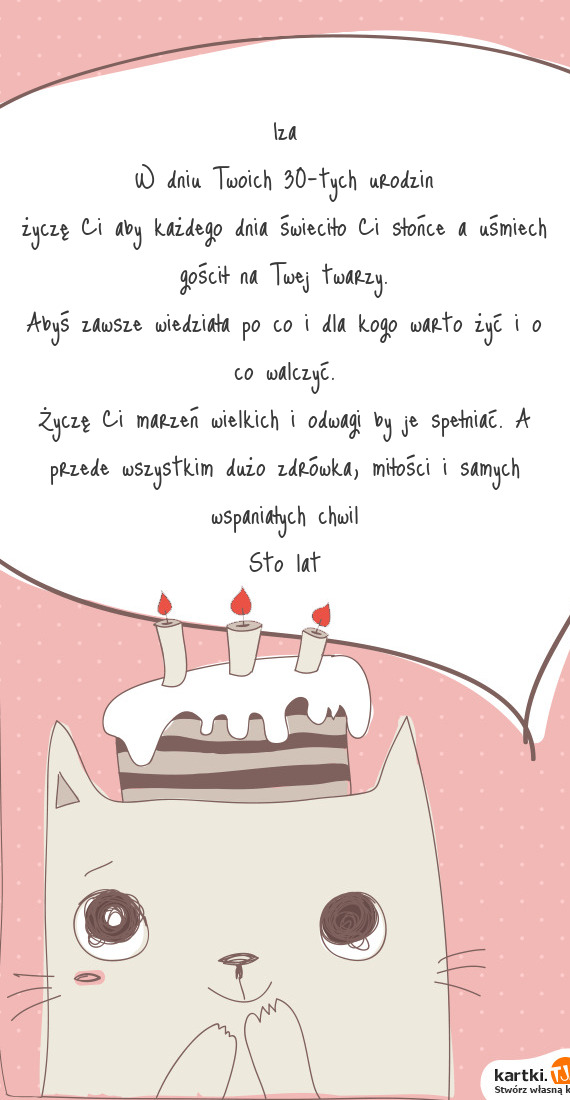 Iza
W dniu Twoich 30-tych urodzin
życzę Ci aby każdego dnia świeciło Ci słońce a uśmiech
gościł na Twej twarzy.
Abyś zawsze wiedziała po co i dla kogo warto żyć i o
co walczyć.
Życzę Ci marzeń wielkich i odwagi by je spełniać. A
przede wszystkim dużo zdrówka, miłości i samych
wspaniałych chwil
Sto lat
kartki.TJ
Stwórz własną k